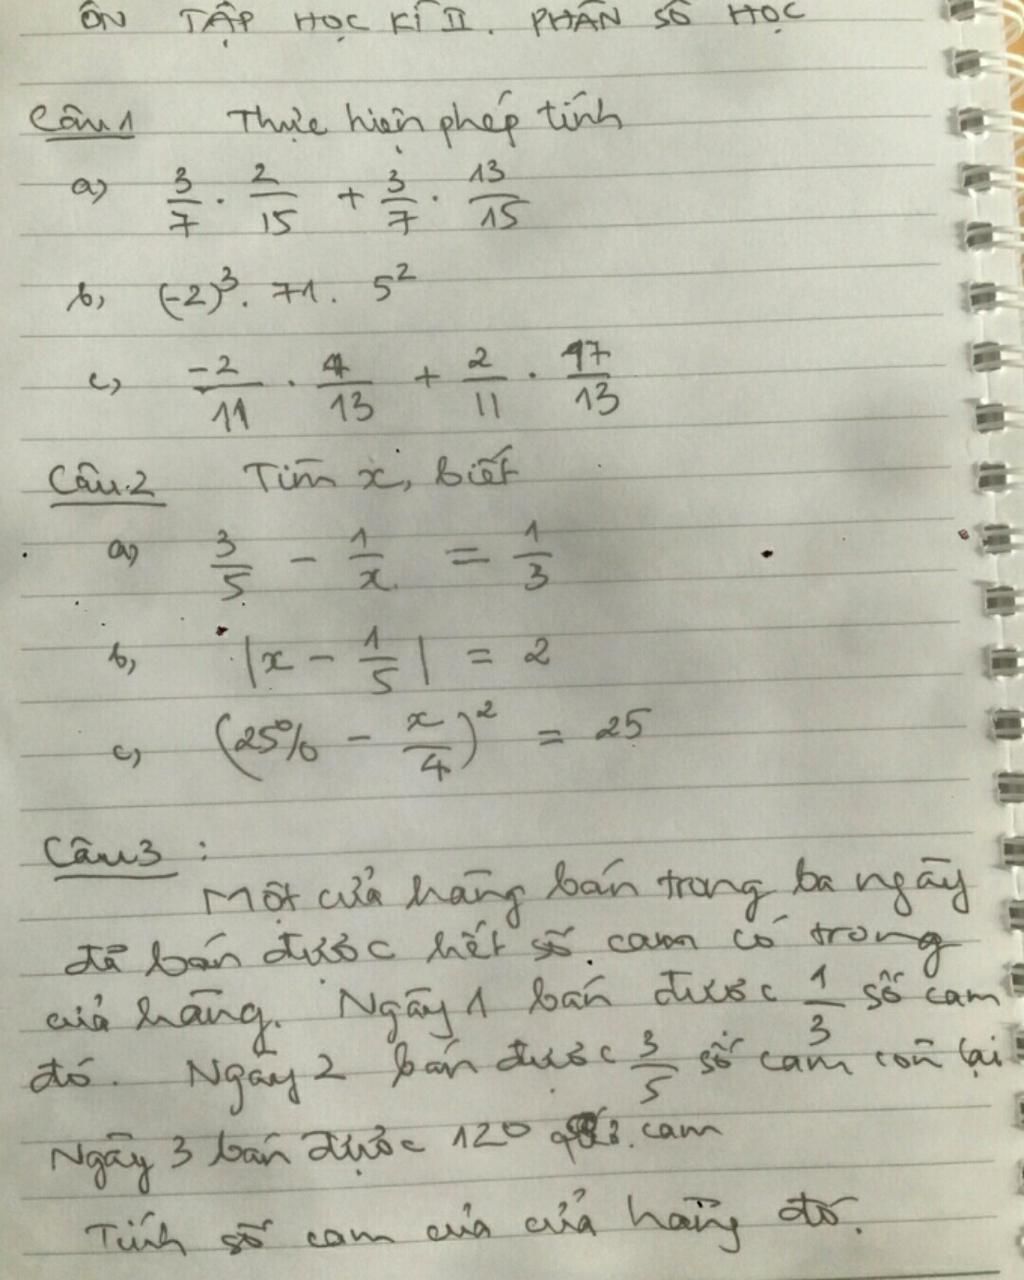 ÔN TẬP HỌC KÌ II. PHẦN SỐ HỌC
Câu 1 Thực hiện phép tính
a) 3/7 . 2/15 + 3/7 . 13/15
b, (-2)³. 71. 5²
c, -2/11 . 4/13 + 2/11 . 17/13
Câu.2 Tìm x, biết
a) 3/5 - 1/x = 1/3
b, |x - 1/5| = 2
c, (25% - x/4)² = 25
Câu 3 :
Một cửa hàng bán trong ba ngày
đã bán được hết số cam có trong
cửa hàng. Ngày 1 bán được 1/3 số cam
đó. Ngày 2 bán được 3/5 số cam còn lại
Ngày 3 bán được 120 cam
Tính số cam của cửa hàng đó.